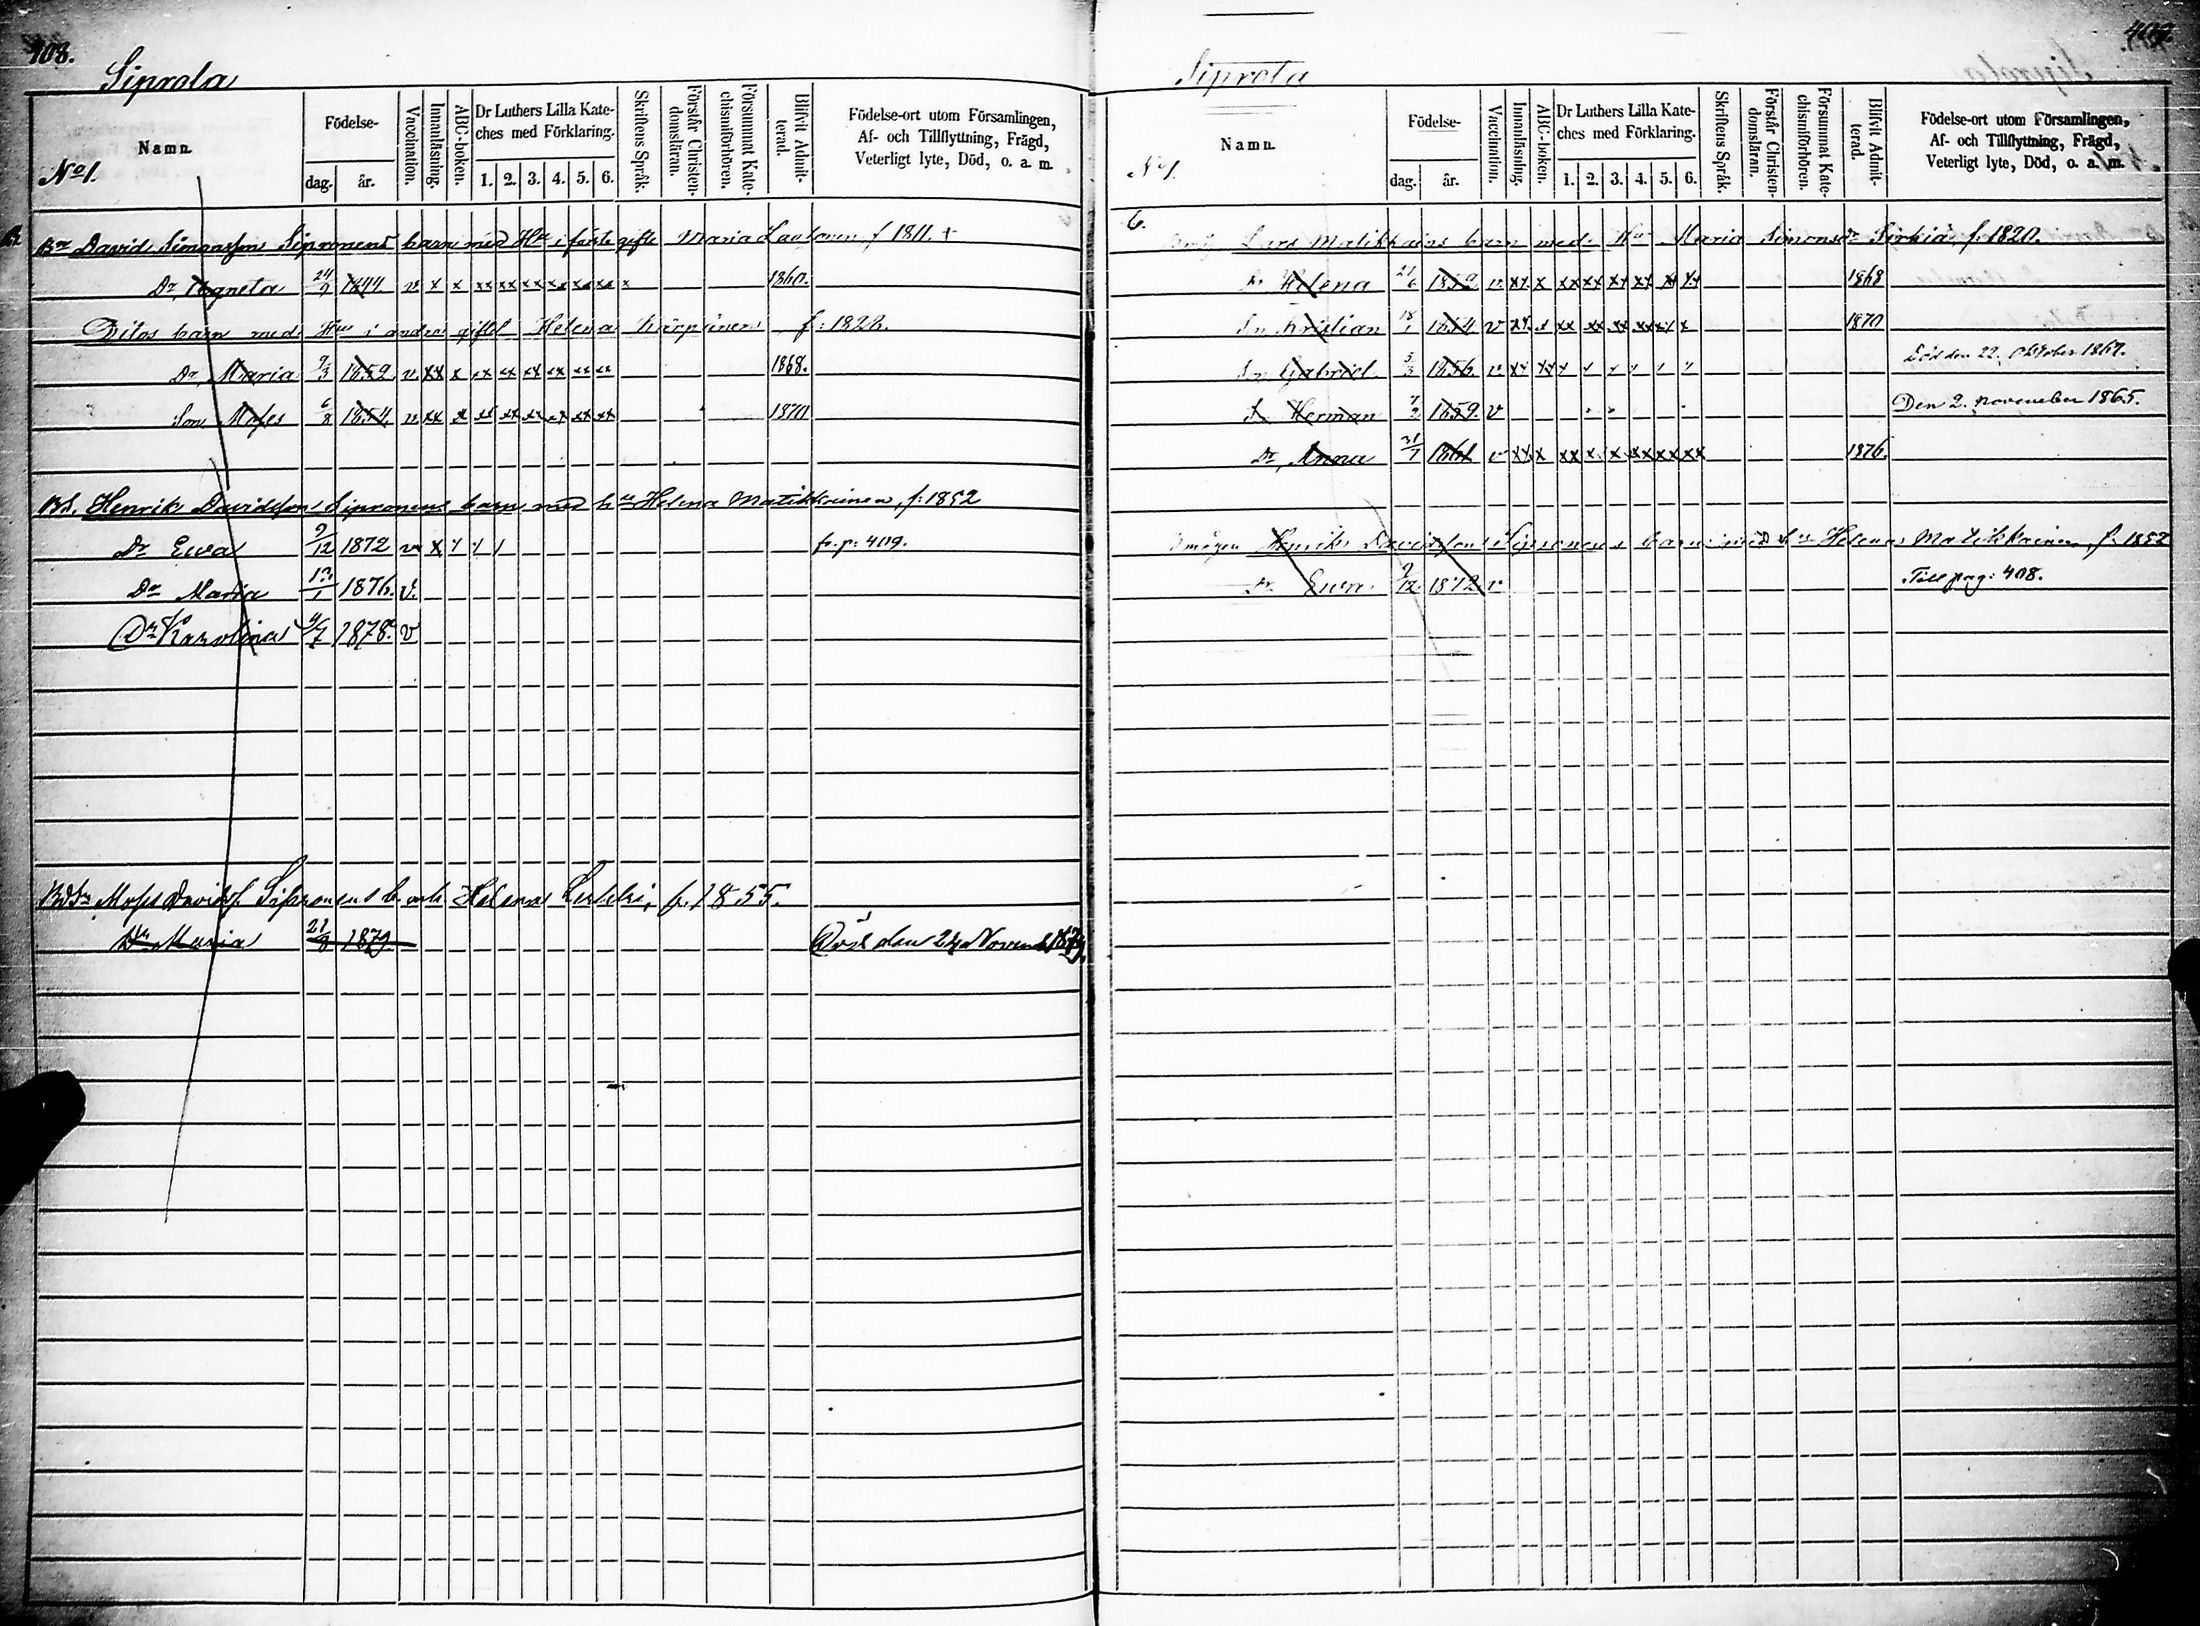 408.
Siprola
No 1.
Namn.
Födelse-
dag.
år.
Vaccination.
Innanläsning.
ABC-boken.
Dr Luthers Lilla Kate-
ches med Förklaring.
1. 2. 3. 4. 5. 6.
Skriftens Språk.
Förstår Christen-
domsläran.
Försummat Kate-
chismiförhören.
Blifvit Admit-
terad.
Födelse-ort utom Församlingen,
Af- och Tillflyttning, Frägd,
Veterligt lyte, Död, o. a. m.
Bn David Simonsson Sipronens barn med Hu i förste gifte Maria f 1811. +
Dr Agneta 24/9 1844 v x x xx xx xx xx xx xx x 1860.
Ditos barn med Hu i andra giftet Helena f: 1822.
Dr Maria 9/3 1852 v xx x xx xx xx xx xx xx 1868.
Son Moses 6/8 1854 v xx x xx xx xx xx xx xx 1870
Bd. Henrik Davidsson Sipronens barn med hu Helena Matikkainen, f: 1852
Dr Ewa 9/12 1872 v x / / / fr. p: 409.
Dr Maria 1876. v.
Dr Karolina 1878. v
Moses Davids. Sipronens b. m h. Helena f. 1855.
Dr Maria 21/8 1879 Död den 24 Novemb 1879.
409.
Siprola
No 1.
Namn.
Födelse-
dag.
år.
Vaccination.
Innanläsning.
ABC-boken.
Dr Luthers Lilla Kate-
ches med Förklaring.
1. 2. 3. 4. 5. 6.
Skriftens Språk.
Förstår Christen-
domsläran.
Försummat Kate-
chismiförhören.
Blifvit Admit-
terad.
Födelse-ort utom Församlingen,
Af- och Tillflyttning, Frägd,
Veterligt lyte, Död, o. a. m.
6.
Lars Matikkains barn med Hu Maria Simonsdr Sirkiä, f. 1820.
Dr Helena 21/6 1852 v xx x xx xx xx xx xx xx 1868
Sn Kristian 18/1 1854 v xx x xx xx xx xx xx x 1870
Sn Gabriel 5/3 1856 v xx xx Död den 22. Oktober 1867.
Sn Herman 1859. v Den 2. November 1865.
Dr Anna 31/7 1861 v xx x xx x x xx xx xx 1876.
Henrik Davidsons Sipronens barn med hu Helena Matikkainen, f. 1852
Dr Ewa 9/12 1872 v Till pag: 408.